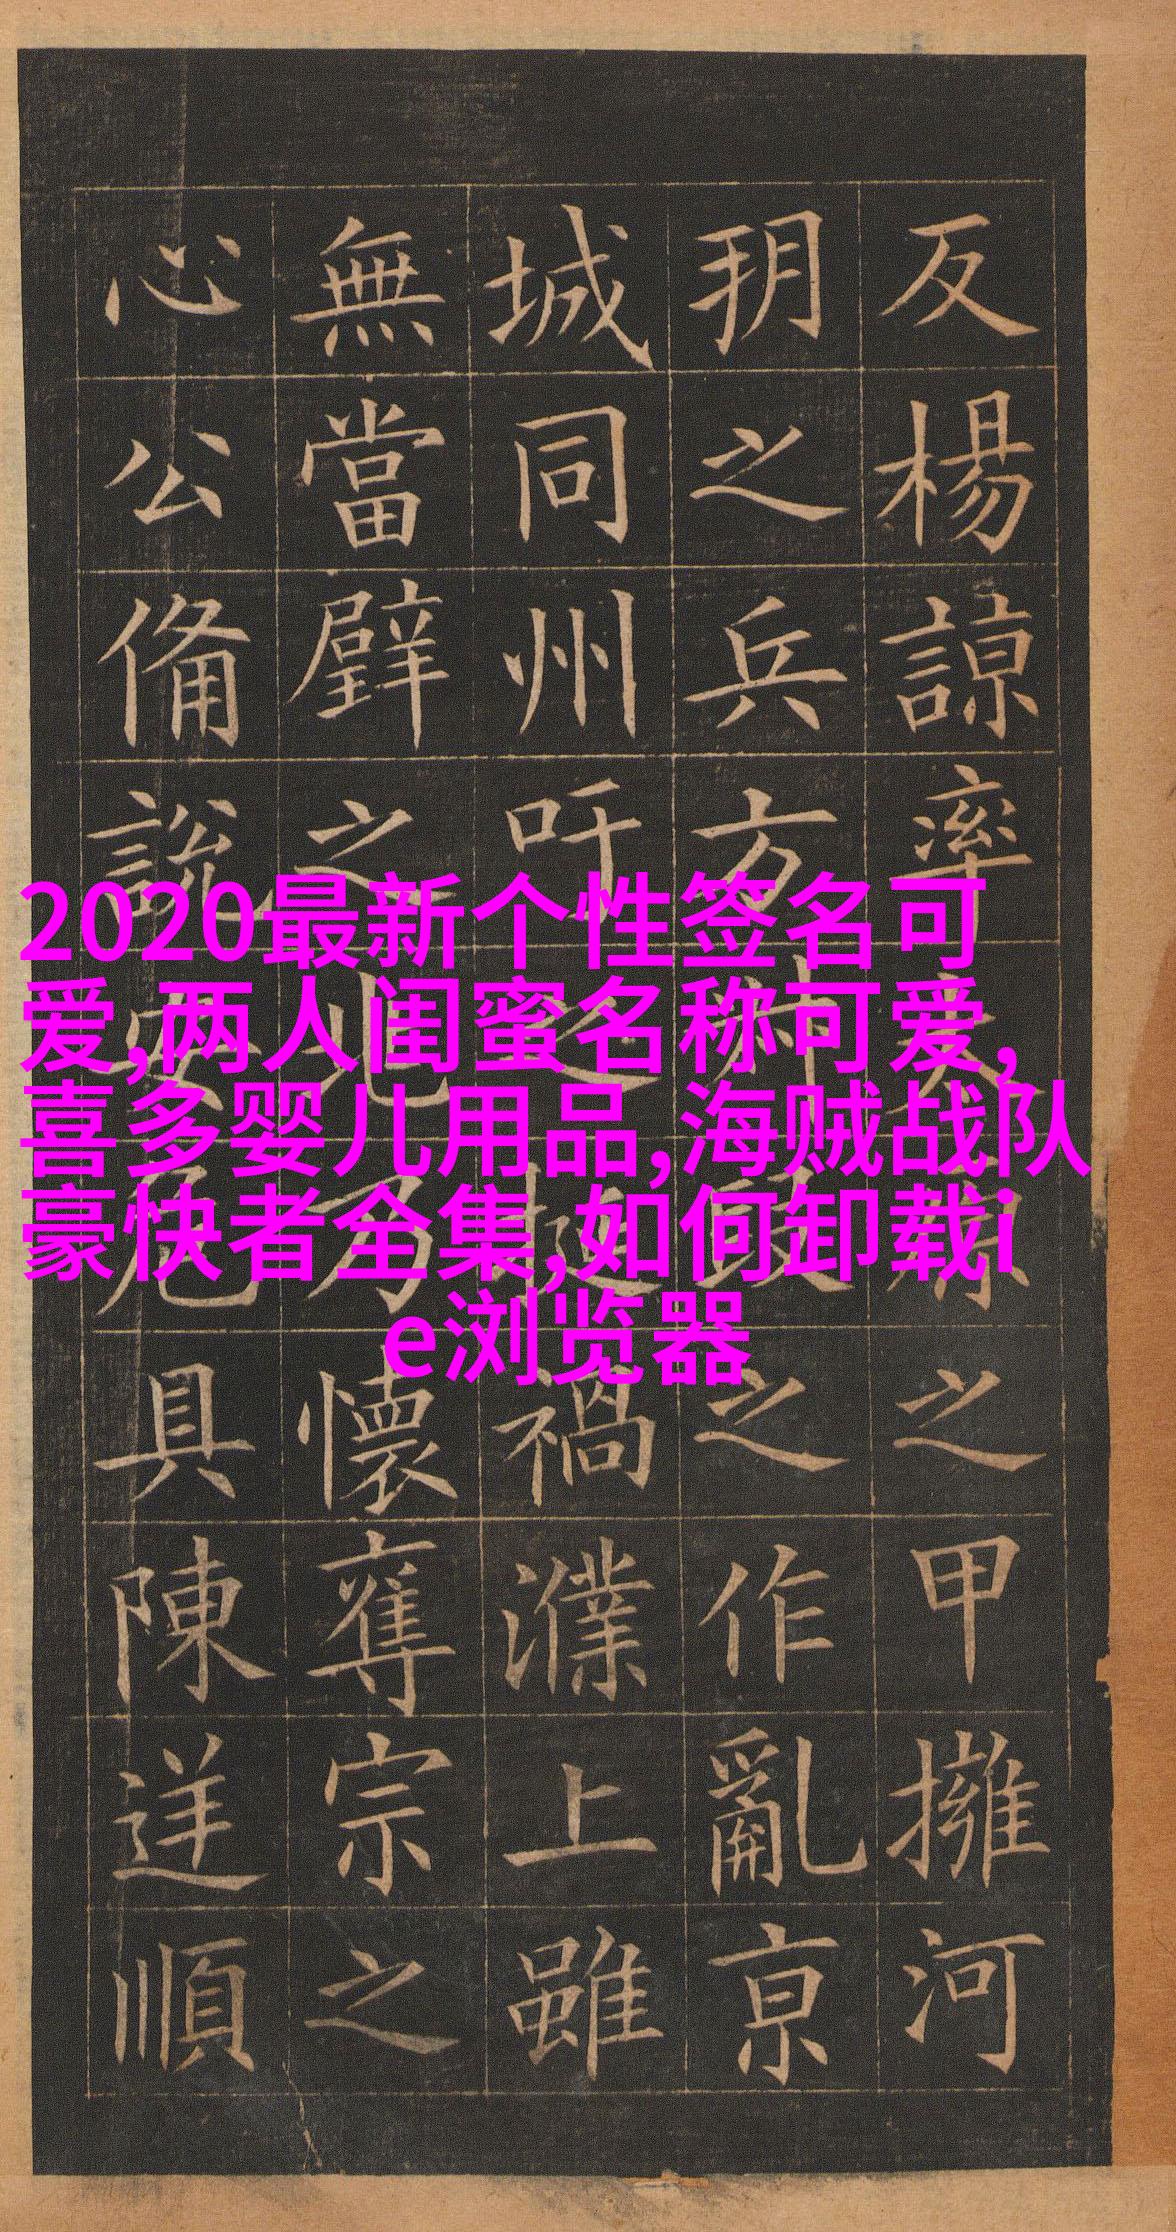 反楊諒率太原之甲擁河
朔之兵方叔段之作亂京
城同州吁之挻禍濮上雖
無當璧之兆乃懷奪宗之
心公備説安危具陳逆順
2020最新个性签名可
爱,两人闺蜜名称可爱,
喜多婴儿用品,海贼战队
豪快者全集,如何卸载i
e浏览器